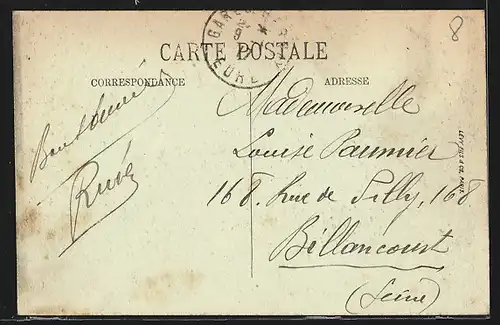 8
GARE
EURE
CARTE POSTALE
CORRESPONDANCE
ADRESSE
René
Mademoiselle
Louise Paumier
168. Rue de Silly, 168
Billancourt
(Seine)